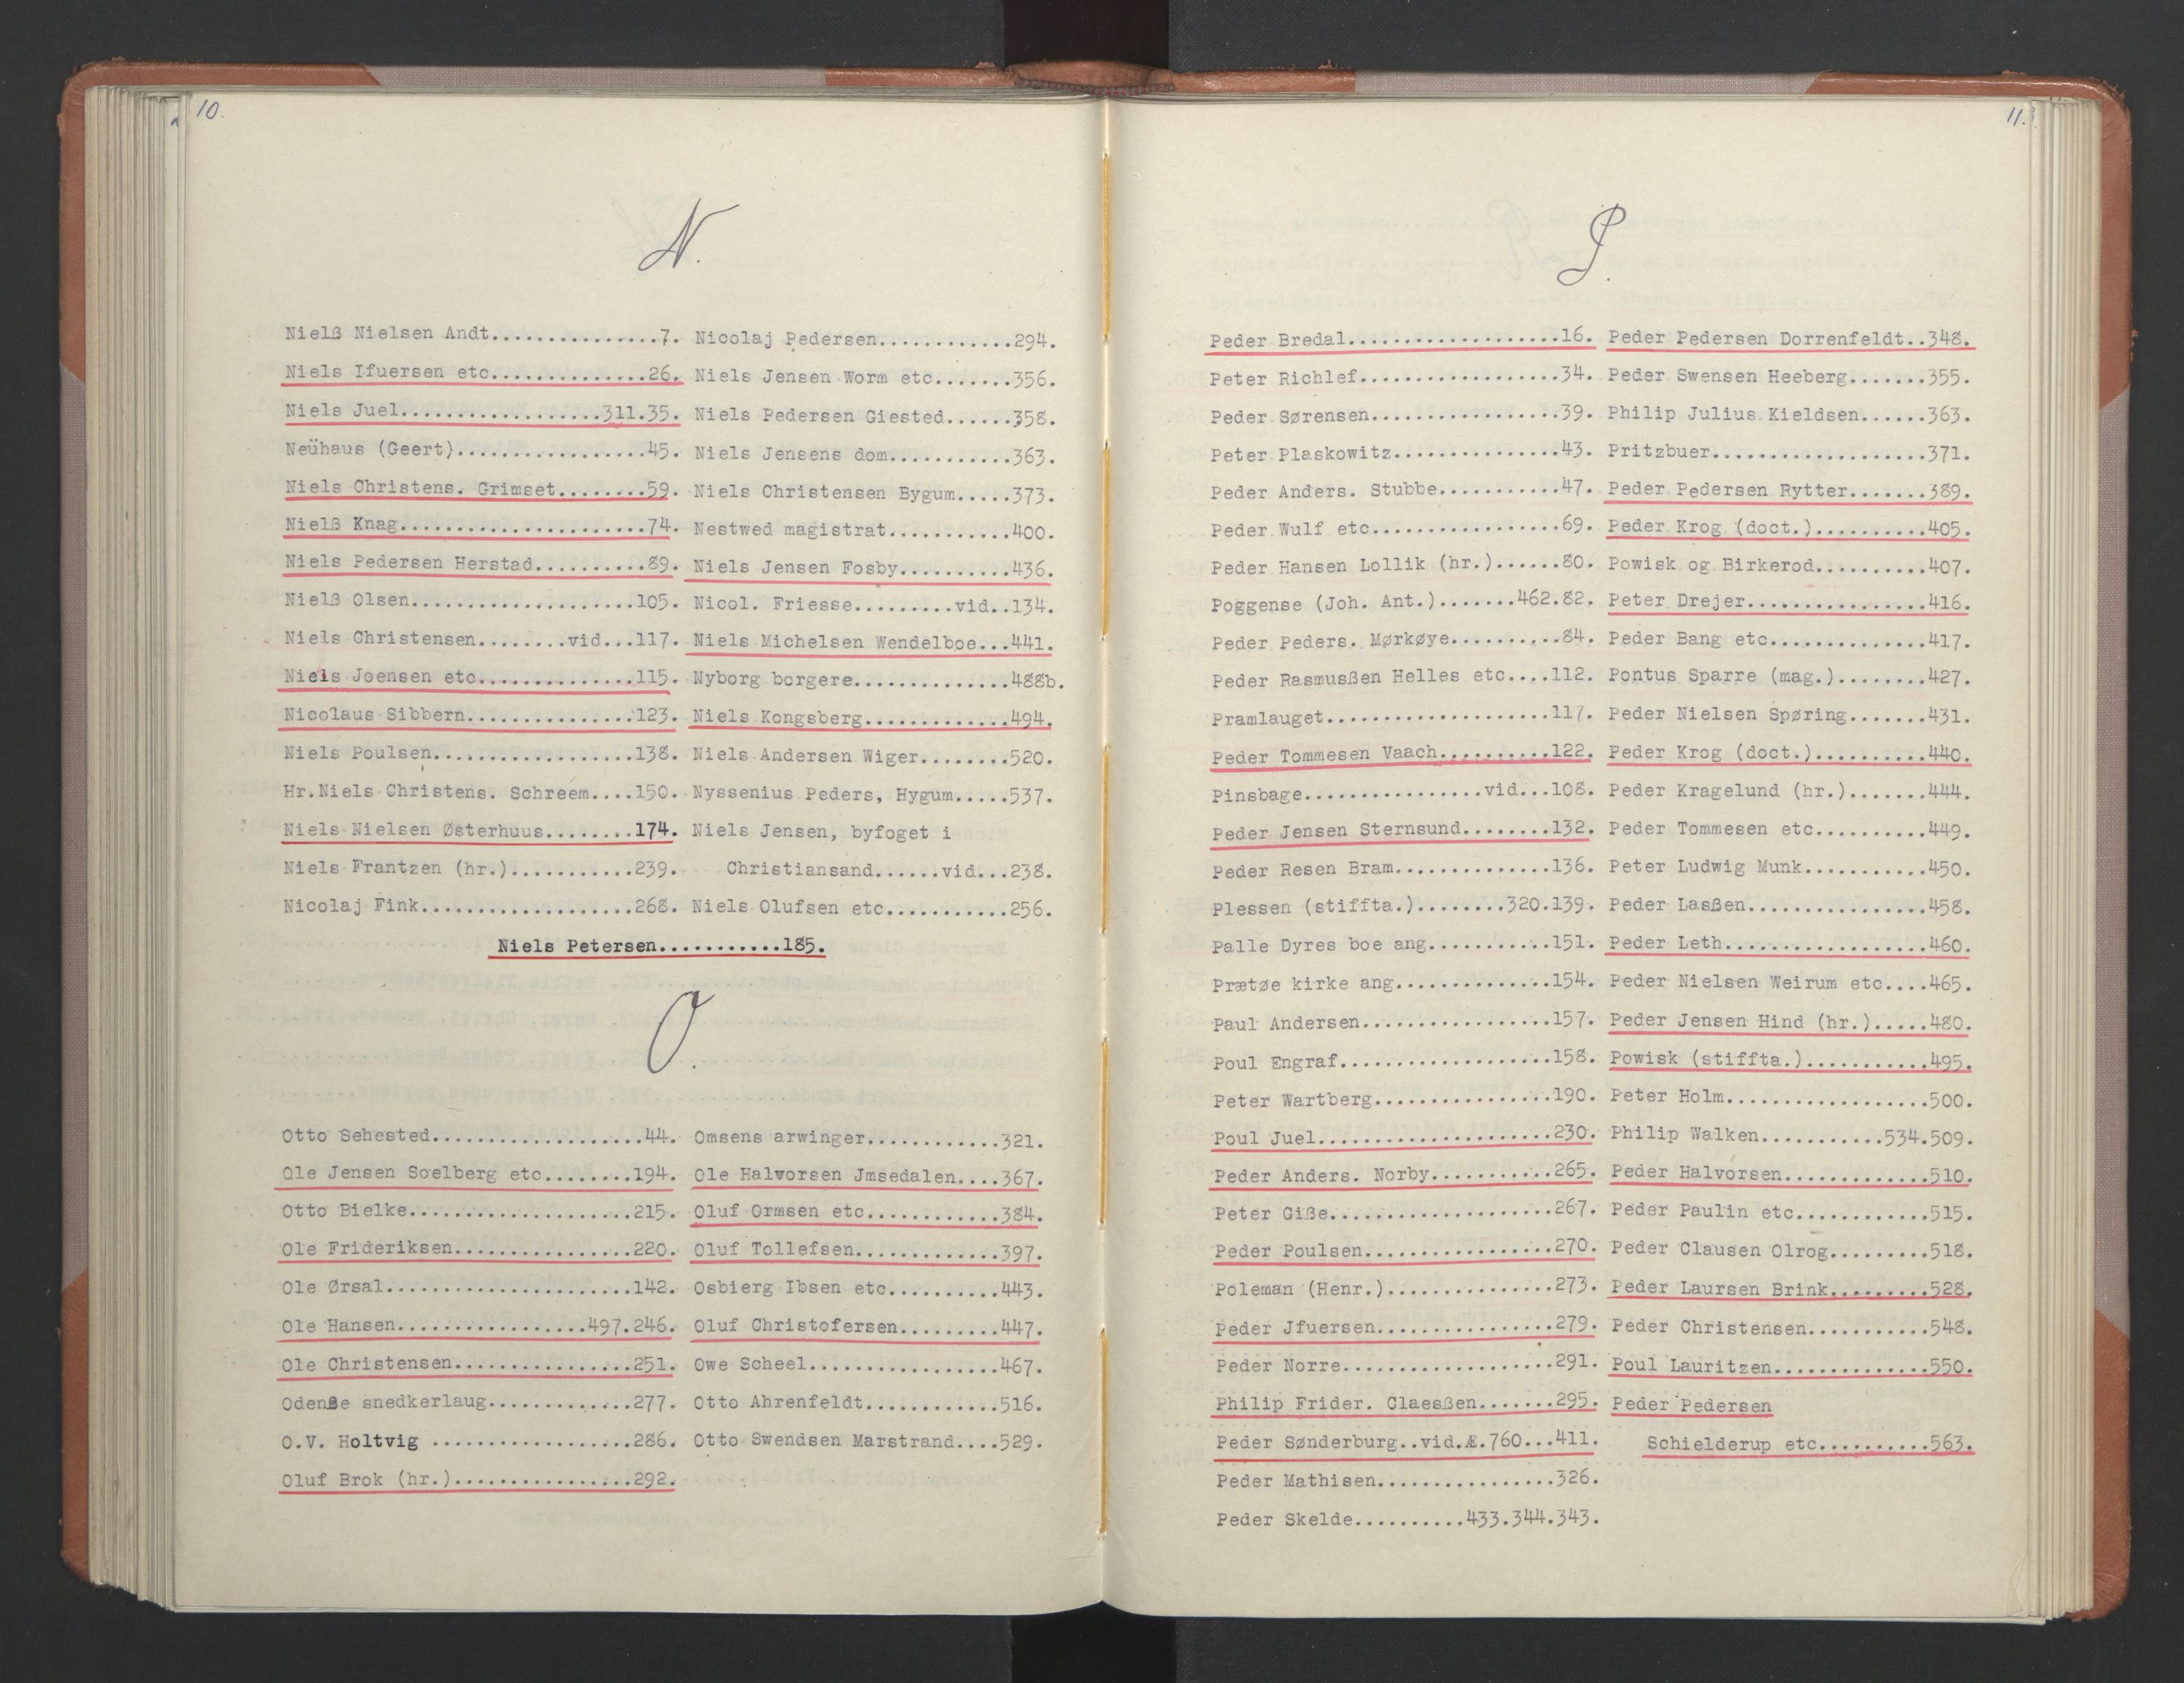 10.
N.
Nielß Nielsen Andt...............7.
Niels Ifuersen etc..............26.
Niels Juel..................311.35.
Neühaus (Geert).................45.
Niels Christens. Grimset........59.
Nielß Knag......................74.
Niels Pedersen Herstad..........89.
Nielß Olsen....................105.
Niels Christensen........vid...117.
Niels Joensen etc..............115.
Nicolaus Sibbern...............123.
Niels Poulsen..................138.
Hr.Niels Christens. Schreem....150.
Niels Nielsen Østerhuus........174.
Niels Frantzen (hr.)...........239.
Nicolaj Fink...................268.
Nicolaj Pedersen............294.
Niels Jensen Worm etc.......356.
Niels Pedersen Giested......358.
Niels Jensens dom...........363.
Niels Christensen Bygum.....373.
Nestwed magistrat...........400.
Niels Jensen Fosby..........436.
Nicol. Friesse.........vid..134.
Niels Michelsen Wendelboe...441.
Nyborg borgere..............488b.
Niels Kongsberg.............494.
Niels Andersen Wiger........520.
Nyssenius Peders, Hygum.....537.
Niels Jensen, byfoget i
Christiansand......vid...238.
Niels Olufsen etc...........256.
Niels Petersen...........185.
O.
Otto Sehested...................44.
Ole Jensen Soelberg etc........194.
Otto Bielke....................215.
Ole Frideriksen................220.
Ole Ørsal......................142.
Ole Hansen.................497.246.
Ole Christensen................251.
Odenße snedkerlaug.............277.
O.V. Holtvig ..................286.
Oluf Brok (hr.)................292.
Omsens arwinger............321.
Ole Halvorsen Jmsedalen....367.
Oluf Ormsen etc............384.
Oluf Tollefsen.............397.
Osbierg Ibsen etc..........443.
Oluf Christofersen.........447.
Owe Scheel.................467.
Otto Ahrenfeldt............516.
Otto Swendsen Marstrand....529.
11.
P.
Peder Bredal...................16.
Peter Richlef..................34.
Peder Sørensen.................39.
Peter Plaskowitz...............43.
Peder Anders. Stubbe...........47.
Peder Wulf etc.................69.
Peder Hansen Lollik (hr.)......80.
Poggense (Joh. Ant.).......462.82.
Peder Peders. Mørkøye..........84.
Peder Rasmusßen Helles etc....112.
Pramlauget....................117.
Peder Tommesen Vaach..........122.
Pinsbage................vid...108.
Peder Jensen Sternsund........132.
Peder Resen Bram..............136.
Plessen (stiffta.)........320.139.
Palle Dyres boe ang...........151.
Prætøe kirke ang..............154.
Paul Andersen.................157.
Poul Engraf...................158.
Peter Wartberg................190.
Poul Juel.....................230.
Peder Anders. Norby...........265.
Peter Giße....................267.
Peder Poulsen.................270.
Poleman (Henr.)...............273.
Peder Jfuersen................279.
Peder Norre...................291.
Philip Frider. Claesßen.......295.
Peder Sønderburg..vid.Æ.760...411.
Peder Mathisen................326.
Peder Skelde..........433.344.343.
Peder Pedersen Dorrenfeldt..348.
Peder Swensen Heeberg.......355.
Philip Julius Kieldsen......363.
Pritzbuer...................371.
Peder Pedersen Rytter.......389.
Peder Krog (doct.)..........405.
Powisk og Birkerod..........407.
Peter Drejer................416.
Peder Bang etc..............417.
Pontus Sparre (mag.)........427.
Peder Nielsen Spøring.......431.
Peder Krog (doct.)..........440.
Peder Kragelund (hr.).......444.
Peder Tommesen etc..........449.
Peter Ludwig Munk...........450.
Peder Lasßen................458.
Peder Leth..................460.
Peder Nielsen Weirum etc....465.
Peder Jensen Hind (hr.).....480.
Powisk (stiffta.)...........495.
Peter Holm..................500.
Philip Walken...........534.509.
Peder Halvorsen.............510.
Peder Paulin etc............515.
Peder Clausen Olrog.........518.
Peder Laursen Brink.........528.
Peder Christensen...........548.
Poul Lauritzen..............550.
Peder Pedersen
Schielderup etc..........563.